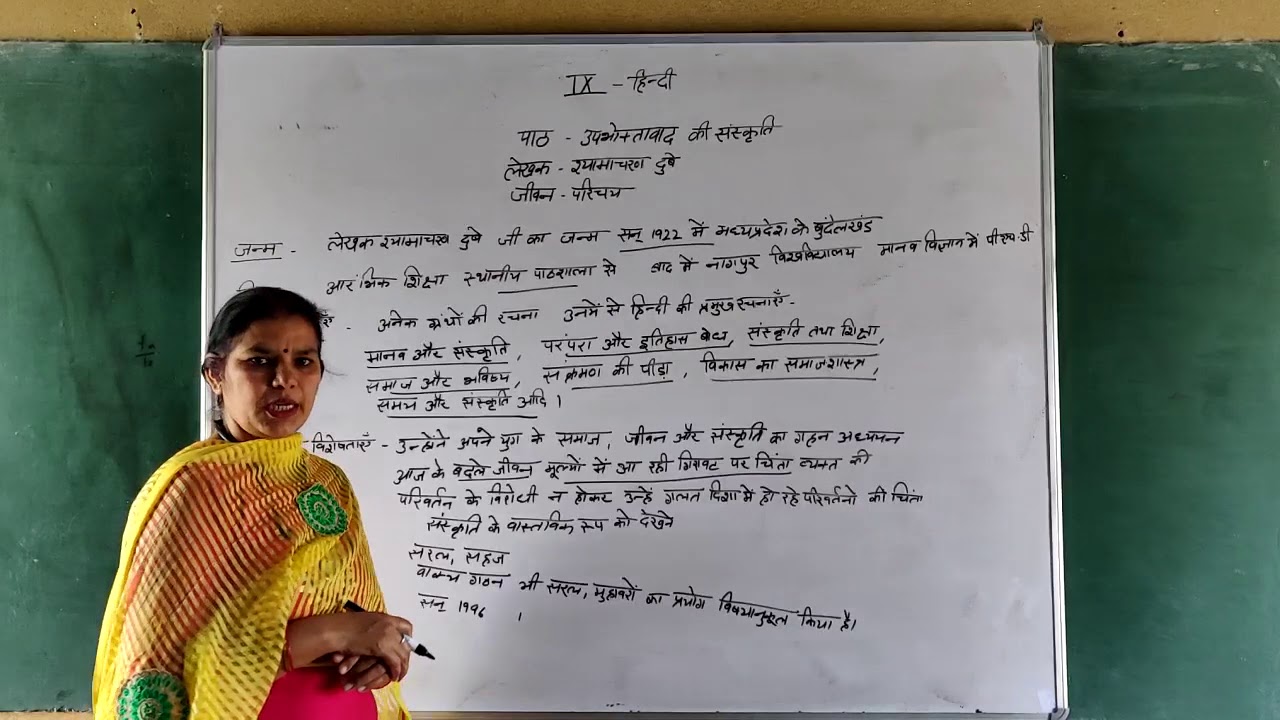 IX - हिन्दी
पाठ - उपभोक्तावाद की संस्कृति
लेखक - श्यामाचरण दुबे
जीवन - परिचय
जन्म - लेखक श्यामाचरण दुबे जी का जन्म सन् 1922 में मध्यप्रदेश के बुंदेलखंड
आरंभिक शिक्षा स्थानीय पाठशाला से बाद में नागपुर विश्वविद्यालय मानव विज्ञान में पीएच.डी
- अनेक ग्रंथों की रचना उनमें से हिन्दी की प्रमुख रचनाएँ -
मानव और संस्कृति, परंपरा और इतिहास बोध, संस्कृति तथा शिक्षा,
समाज और भविष्य, संक्रमण की पीड़ा, विकास का समाजशास्त्र,
समय और संस्कृति आदि।
- विशेषताएँ - उन्होंने अपने युग के समाज, जीवन और संस्कृति का गहन अध्ययन
आज के बदले जीवन मूल्यों में आ रही गिरावट पर चिंता व्यक्त की
परिवर्तन के विरोधी न होकर उन्हें गलत दिशा में हो रहे परिवर्तनो की चिंता
संस्कृति के वास्तविक रूप को देखने
सरल, सहज
वाक्य गठन भी सरल, मुहावरों का प्रयोग विषयानुकूल किया है।
सन् 1996 ।